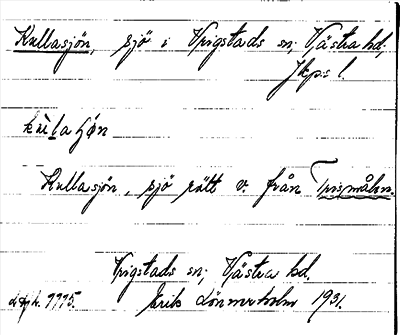 Kullasjön, sjö i Vrigstads sn; Västra hd;
Jkps l.
kùla ʃøn
Kullasjön, sjö rätt v. från Trismåln.
Vrigstads sn; Västra hd.
Erik Lönnerholm 1931.